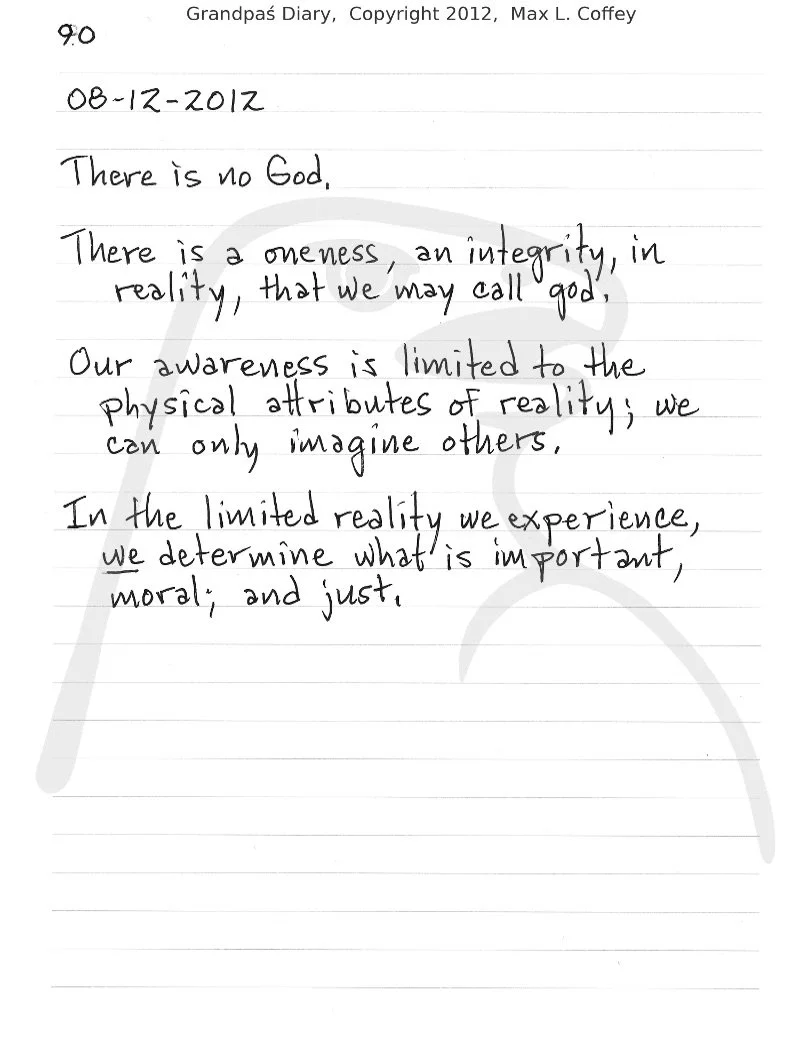 Grandpaś Diary, Copyright 2012, Max L. Coffey
90
08-12-2012
There is no God.
There is a oneness, an integrity, in
reality, that we may call 'god'.
Our awareness is limited to the
physical attributes of reality; we
can only imagine others.
In the limited reality we experience,
we determine what is important,
moral; and just.